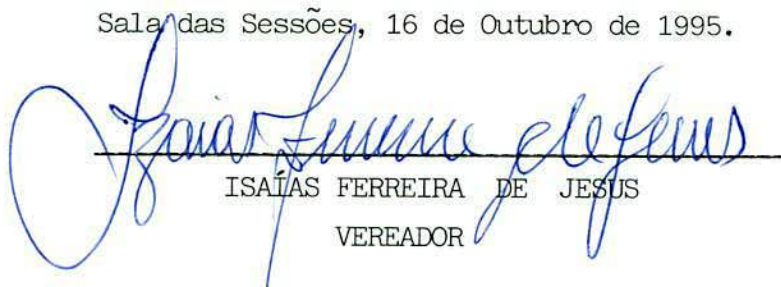 Sala das Sessões, 16 de Outubro de 1995.
Izaias Ferreira de Jesus
ISAÍAS FERREIRA DE JESUS
VEREADOR